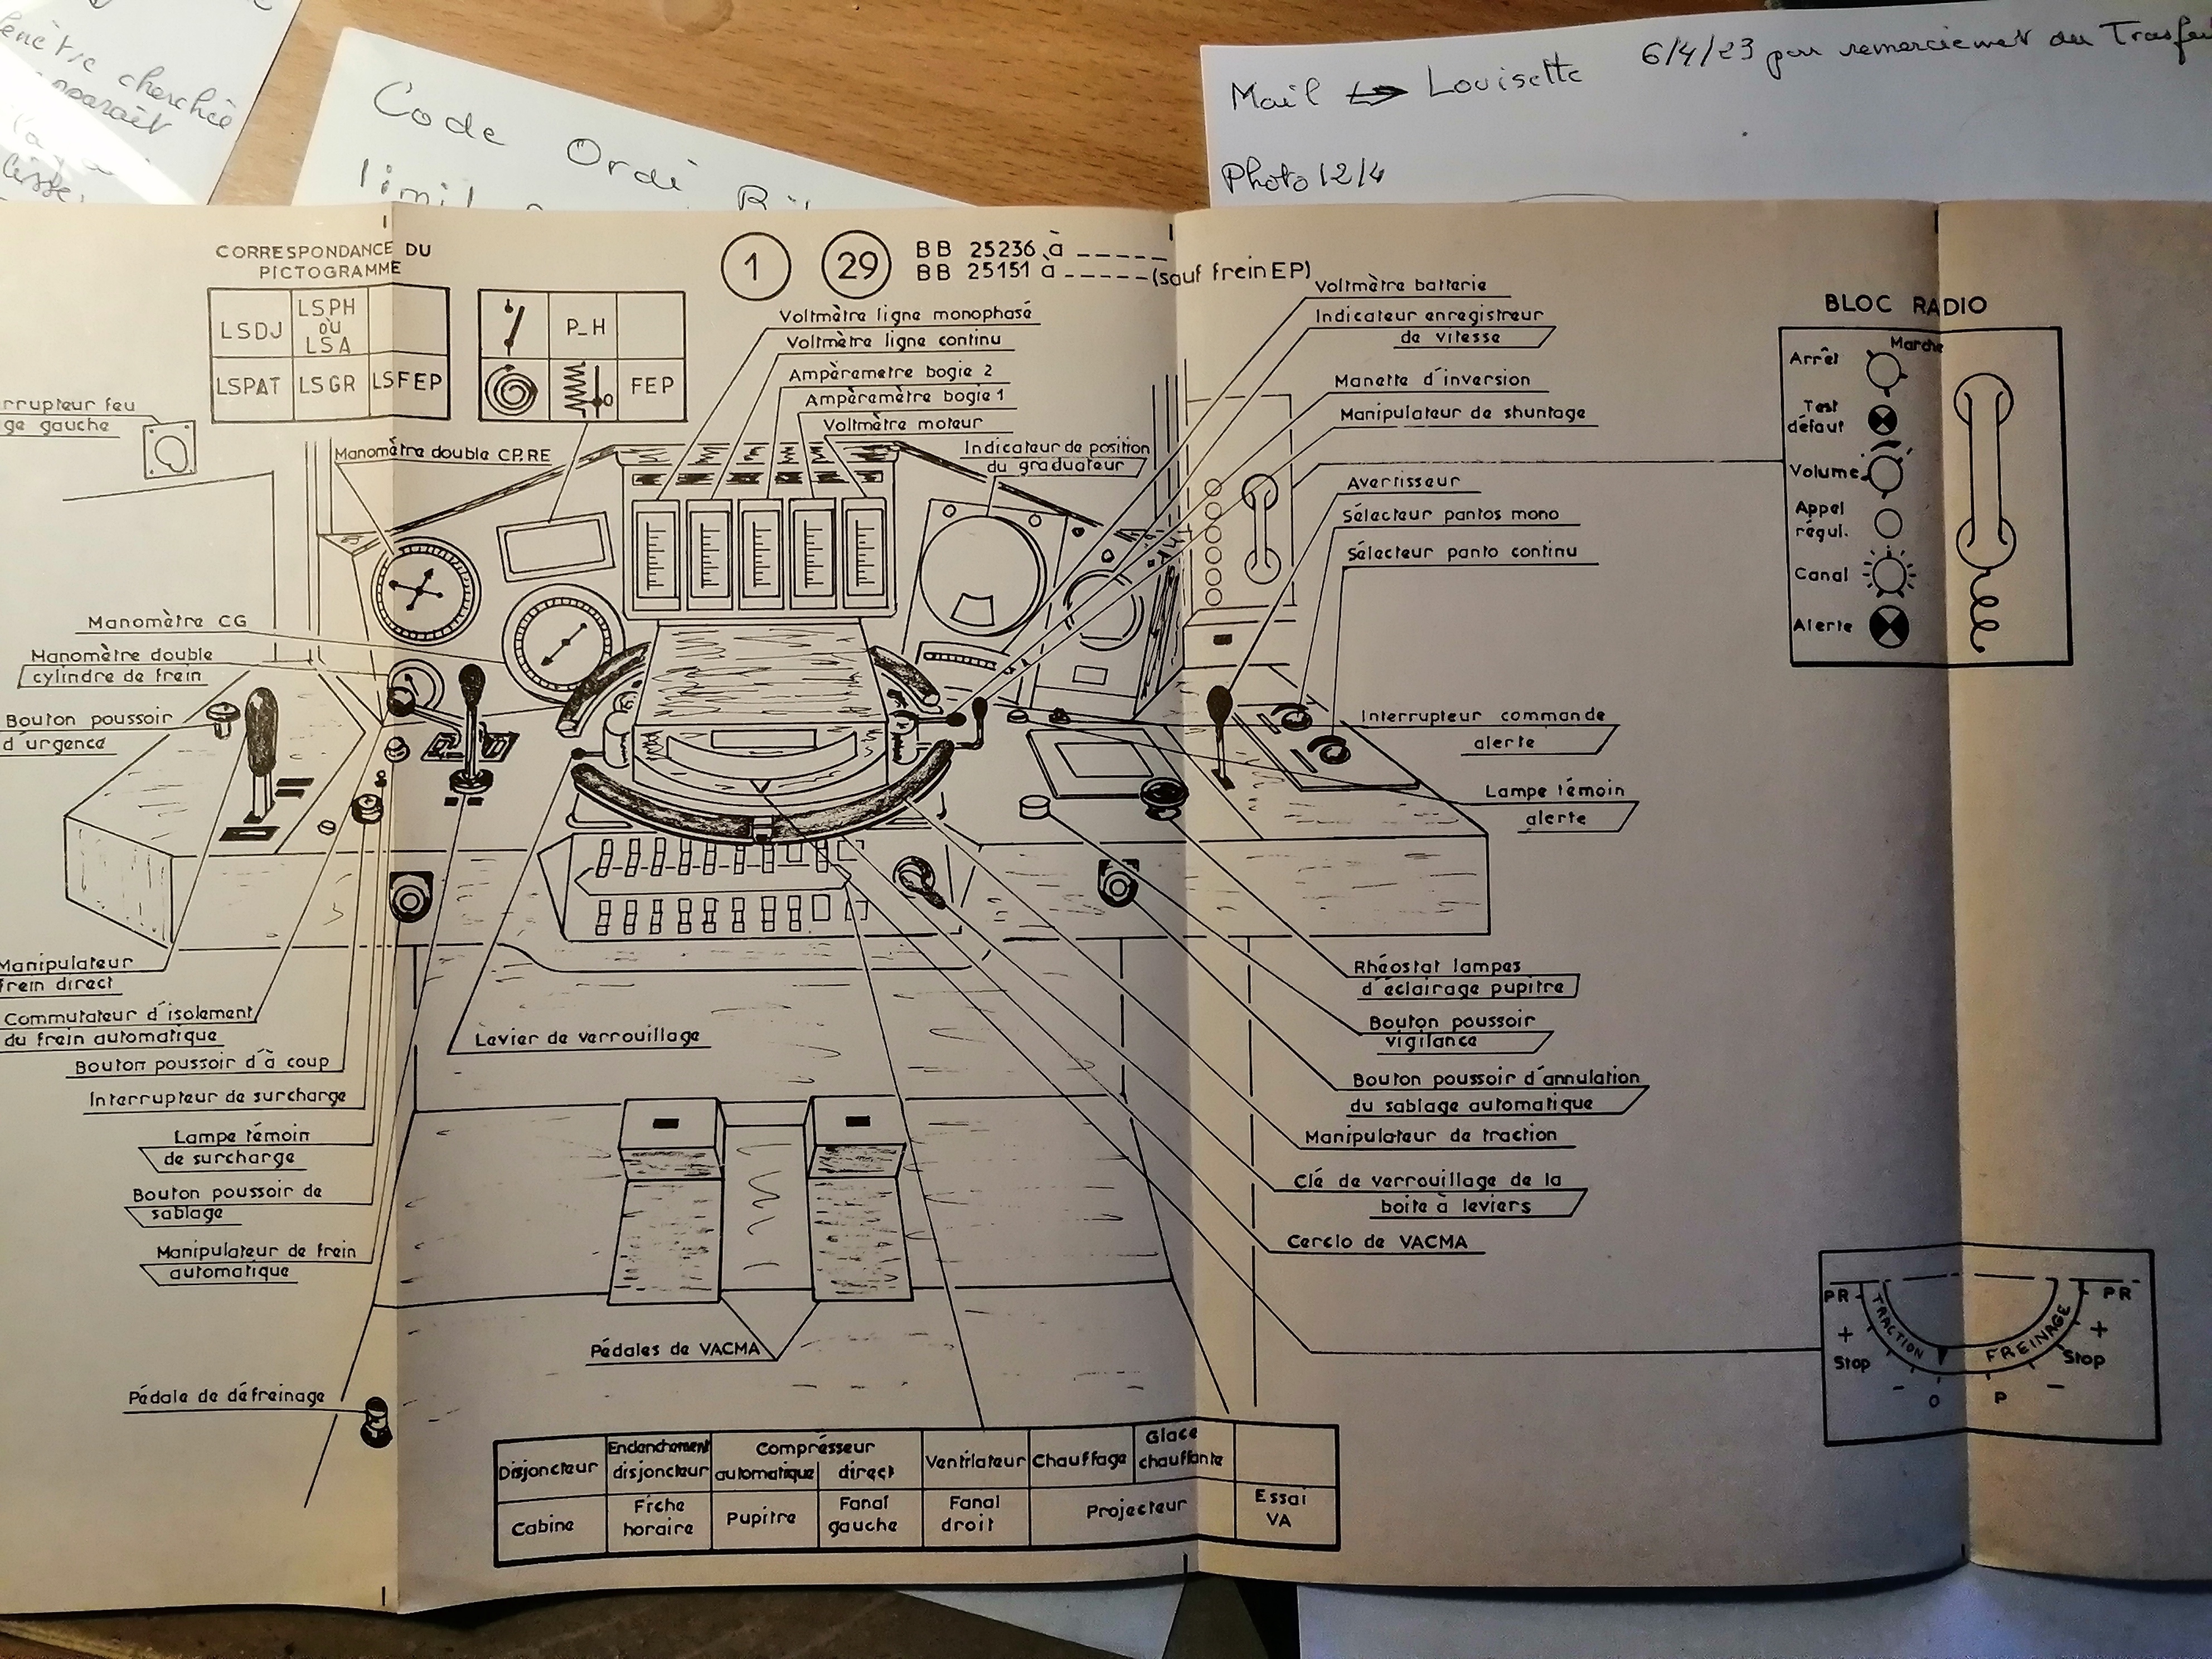 cherchée
Code Ordi
Mail ↔ Louisette
6/4/23 pour remerciement du
Photo 12/4
CORRESPONDANCE DU
PICTOGRAMME
LSDJ
LSPH
où
LSA
LSPAT
LSGR
LSFEP
P_H
FEP
1
29
BB 25236 à ------
BB 25151 à ----- (sauf frein EP)
Voltmètre ligne monophasé
Voltmètre ligne continu
Ampèrametre bogie 2
Ampèramètre bogie 1
Voltmètre moteur
Indicateur de position
du graduateur
Voltmètre batterie
Indicateur enregistreur
de vitesse
Manette d'inversion
Manipulateur de shuntage
Avertisseur
Sélecteur pantos mono
Sélecteur panto continu
BLOC RADIO
Arrêt
Marche
Test
défaut
Volume
Appel
régul.
Canal
Alerte
rrupteur feu
ge gauche
Manomètre double CP.RE
Manomètre CG
Manomètre double
cylindre de frein
Bouton poussoir
d'urgence
Manipulateur
frein direct
Commutateur d'isolement
du frein automatique
Bouton poussoir d'à coup
Interrupteur de surcharge
Lampe témoin
de surcharge
Bouton poussoir de
sablage
Manipulateur de frein
automatique
Levier de verrouillage
Pédales de VACMA
Pédale de défreinage
Interrupteur commande
alerte
Lampe témoin
alerte
Rhéostat lampes
d'éclairage pupitre
Bouton poussoir
vigilance
Bouton poussoir d'annulation
du sablage automatique
Manipulateur de traction
Clé de verrouillage de la
boite à leviers
Cerclo de VACMA
PR
+
Stop
-
0
TRACTION
FREINAGE
P
-
Stop
+
PR
Disjoncteur
Enclenchement
disjoncteur
Comprésseur
automatique
direct
Ventilateur
Chauffage
Glace
chauffante
Cabine
Fiche
horaire
Pupitre
Fanal
gauche
Fanal
droit
Projecteur
Essai
VA